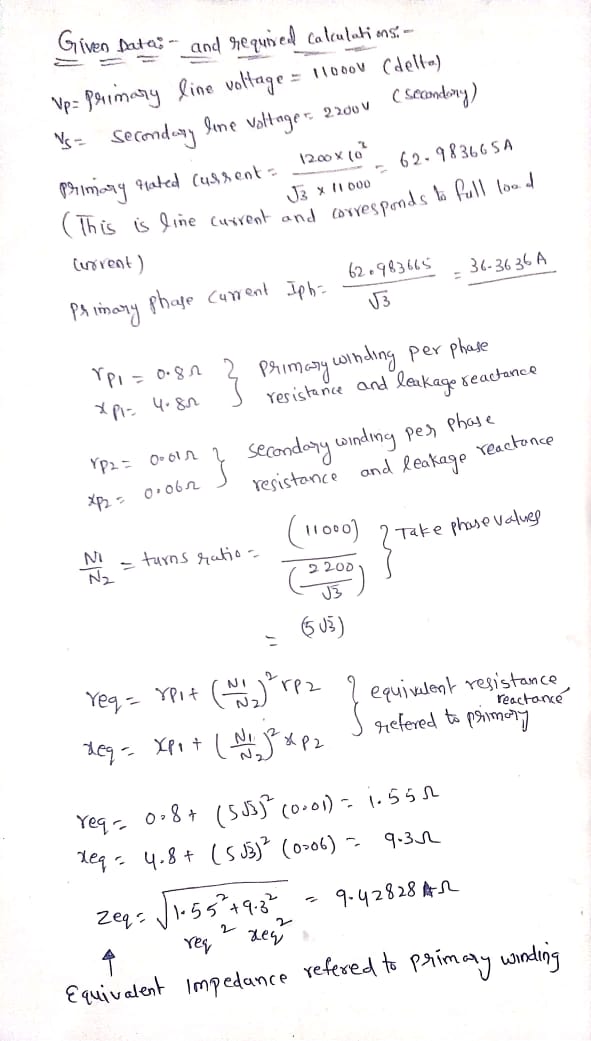 Given Data:- and required calculations:-
Vp = primary line voltage = 11000V (delta)
Vs = Secondary line voltage = 2200V (Secondary)
primary rated current = 1200×10² / √3 × 11000 = 62.983665A
(This is line current and corresponds to full load
current)
Primary phase current Iph = 62.983665 / √3 = 36.3636A
rp1 = 0.8Ω } primary winding per phase
xp1 = 4.8Ω resistance and leakage reactance
rp2 = 0.01Ω } secondary winding per phase
xp2 = 0.06Ω resistance and leakage reactance
N1/N2 = turns ratio = (11000) / (2200/√3) } Take phase values
= (5√3)
req = rp1 + (N1/N2)² rp2 } equivalent resistance
reactance
xeq = xp1 + (N1/N2)² xp2 refered to primary
req = 0.8 + (5√3)² (0.01) = 1.55Ω
xeq = 4.8 + (5√3)² (0.06) = 9.3Ω
Zeq = √1.55² + 9.3² = 9.42828 Ω
req² xeq²
↑
Equivalent Impedance refered to primary winding